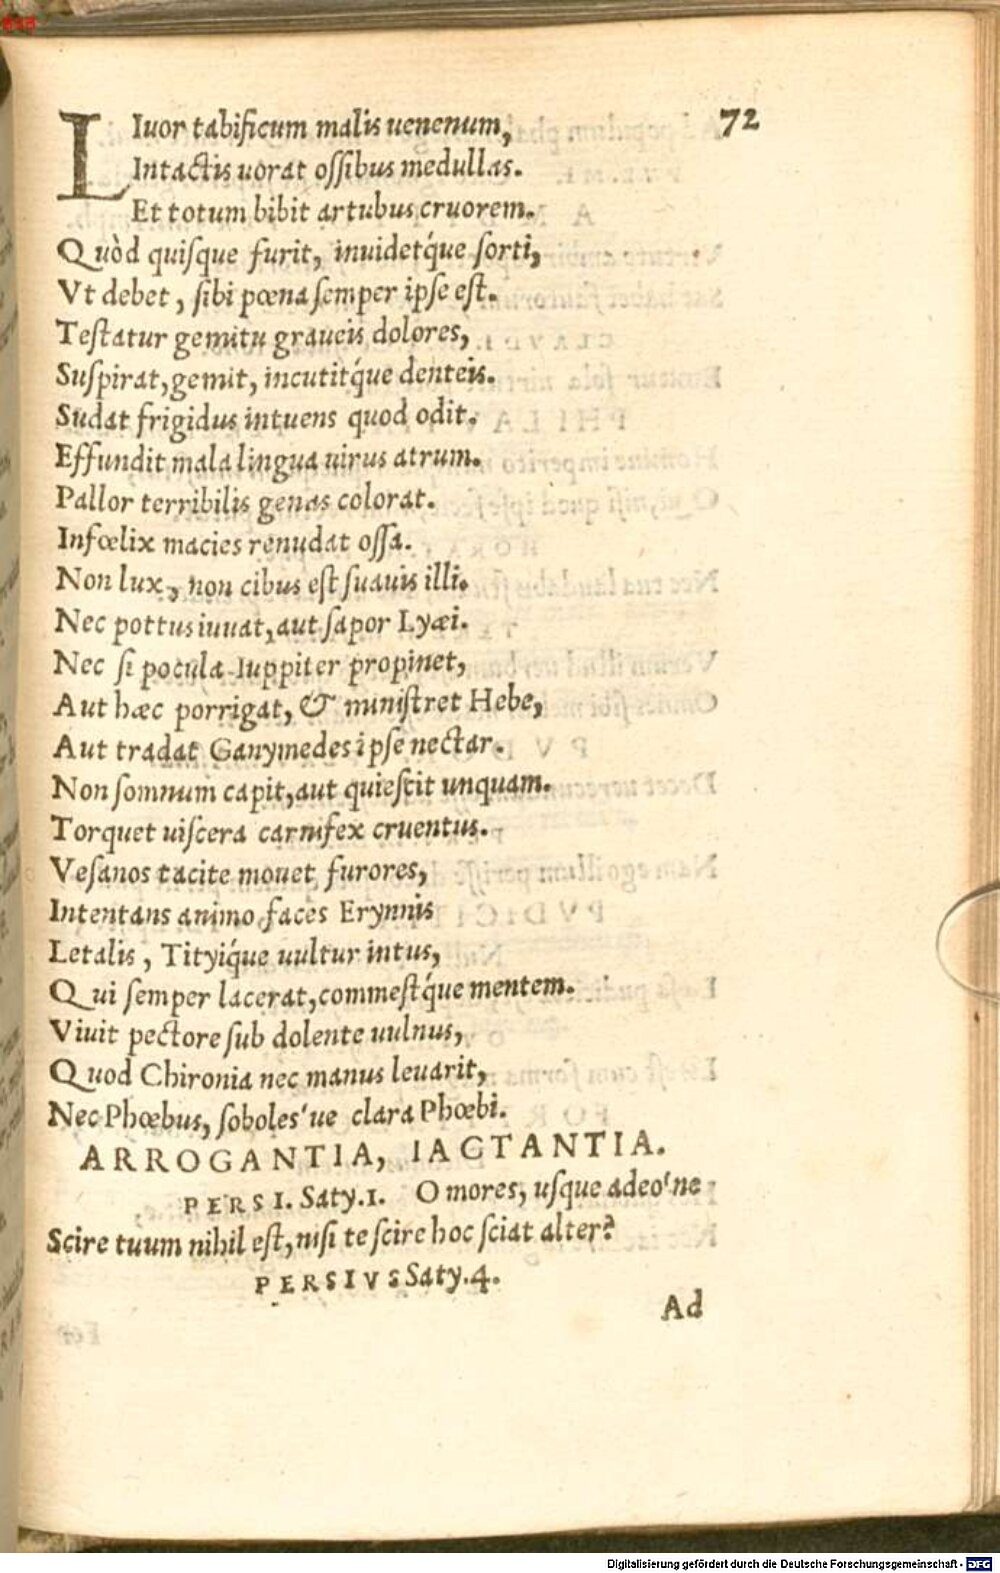 72
LIuor tabificum malis uenenum,
Intactis uorat ossibus medullas.
Et totum bibit artubus cruorem.
Quòd quisque furit, inuidetq́ue sorti,
Vt debet, sibi pœna semper ipse est.
Testatur gemitu graueis dolores,
Suspirat, gemit, incutitq́ue denteis.
Sudat frigidus intuens quod odit.
Effundit mala lingua uirus atrum.
Pallor terribilis genas colorat.
Infœlix macies renudat ossa.
Non lux, non cibus est suauis illi.
Nec pottus iuuat, aut sapor Lyæi.
Nec si pocula Iuppiter propinet,
Aut hæc porrigat, & ministret Hebe,
Aut tradat Ganymedes ipse nectar.
Non somnum capit, aut quiescit unquam.
Torquet uiscera carnifex cruentus.
Vesanos tacite mouet furores,
Intentans animo faces Erynnis
Letalis, Tityiq́ue uultur intus,
Qui semper lacerat, commestq́ue mentem.
Viuit pectore sub dolente uulnus,
Quod Chironia nec manus leuarit,
Nec Phœbus, soboles'ue clara Phœbi.
ARROGANTIA, IACTANTIA.
PERSI. Saty.1. O mores, usque adeo'ne
Scire tuum nihil est, nisi te scire hoc sciat alter?
PERSIVS Saty.4.
Ad
Digitalisierung gefördert durch die Deutsche Forschungsgemeinschaft - DFG